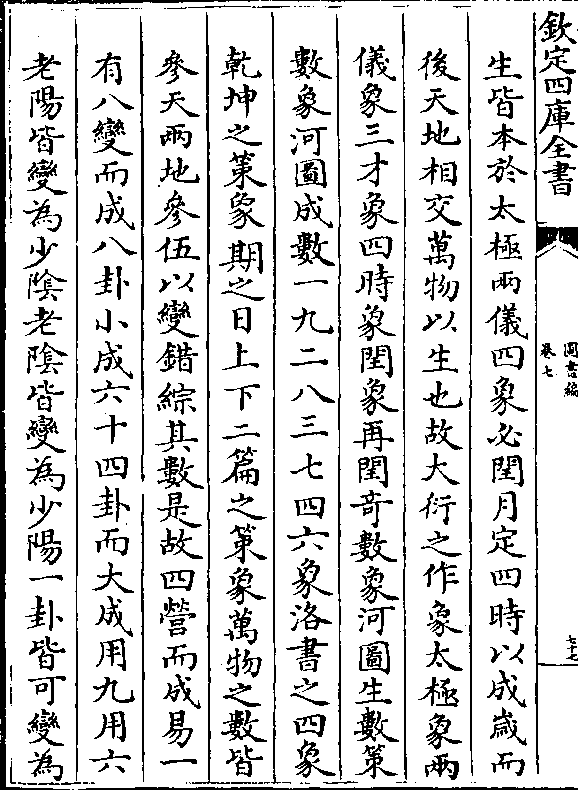 欽定四庫全書
圖書編
卷七
七十七
生皆本於太極兩儀四象必閏月定四時以成歲而
後天地相交萬物以生也故大衍之作象太極象兩
儀象三才象四時象閏象再閏奇數象河圖生數策
數象河圖成數一九二八三七四六象洛書之四象
乾坤之策象期之日上下二篇之策象萬物之數皆
參天兩地參伍以變錯綜其數是故四營而成易一
有八變而成八卦小成六十四卦而大成用九用六
老陽皆變為少陰老陰皆變為少陽一卦皆可變為